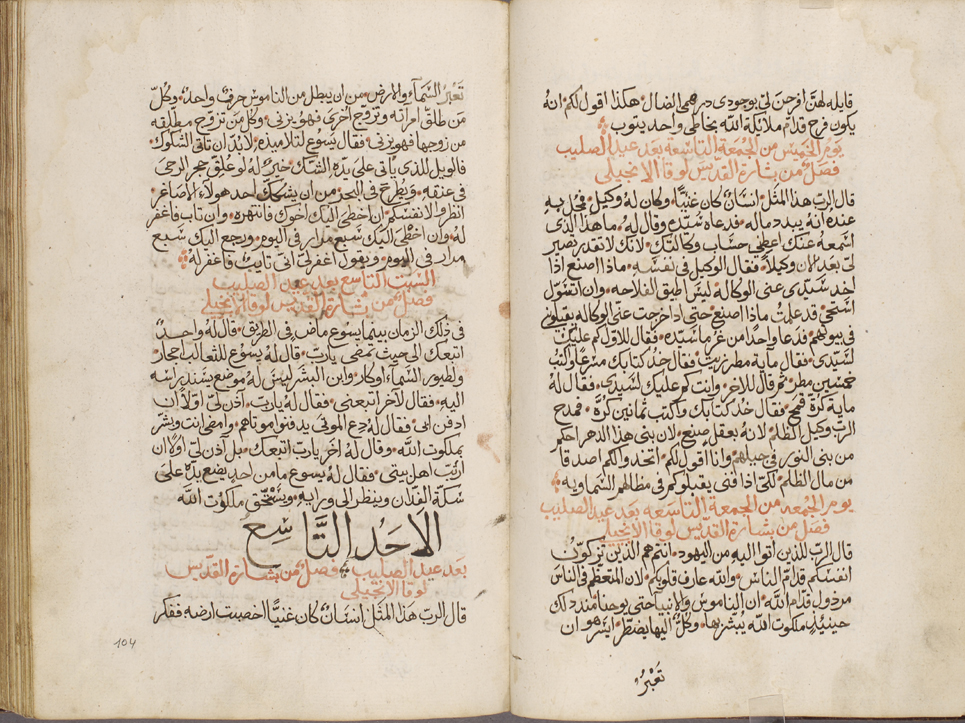 قايله لهنّ افرحن لي بوجودي درهمي الضال هكذا اقول لكم انهُ
يكون فرح قدام ملايكة الله بخاطي واحد يتوب
يوم الخميس من الجمعة التاسعه بعد عيد الصليب
فصل من بشارة القديس لوقا الانجيلي
قال الرب هذا المثل انسانٌ كان غنيًّا وكان لهُ وكيل فمحل بهِ
عنده انهُ يبدد ماله فدعاه سيّده وقال لهُ ما هذا الذي
اسمعهُ عنك اعطِني حساب وكالتك لانك لا تقدر تصير
لي بعد الان وكيلاً فقال الوكيل في نفسه ماذا اصنع اذا
اخد سيّدي عني الوكاله ليس اطيق الفلاحه وان اتسوّل
استحي قد علمتُ ماذا اصنع حتى اذا خرجت عن الوكاله يقبلوني
في بيوتهم فدعا واحدًا من غرما سيّده فقال للاول كم عليك
لسيّدي فقال مايه مطر زيت فقال خد كتابك سرعًا واكتُب
خمسين مطر ثم قال للاخر وانت كم عليك لسيّدي فقال لهُ
مايه كرّة قمح فقال خد كتابك واكتب ثمانين كرّة فمدح
الرب وكيل الظلم لانهُ بعقل صنع لان بني هذا الدهر احكم
من بني النور في جيلهم وانا اقول لكم اتخدوا لكم اصدقا
من مال الظلم لكي اذا فني يقبلوكم في مظالهم السماويه
يوم الجمعه من الجمعة التاسعه بعد عيد الصليب
فصل من بشارة القديس لوقا الانجيلي
قال الرب للذين اتوا اليهِ من اليهود انتم هم الذين تزكّون
انفسكم قدام الناس والله عارف قلوبكم لان المتعظم في الناس
مرذول قدام الله ان الناموس والانبيا حتى يوحنا منذ داك
حينيذٍ ملكوت الله يُبشر بها وكلٌ اليها يضطر ايسر هو ان
تَعبُرَ
تَعبُر السَّمآء والارض من ان يبطل من الناموس حرفٌ واحد وكلّ
مَن طلّق امراتهِ وتزوّج اخرى فهو يزني وكل من تزوّج مطلّقه
من زوجها فهو يزني فقال يسوع لتلاميذه لا بد ان تاتي الشكوك
فالويل للذي ياتي على يدهِ الشك خيرٌ لهُ لو عُلّق حجر الرحى
في عنقهِ ويُطرح في البحر من ان يشكك احد هولاء الاصاغر
انظروا لانفسكم ان اخطى اليك اخوك فانتهره وان تاب فاغفر
لهُ وان اخطَى اليك سبع مرار في اليوم ورجع اليك سبع
مرار في اليوم ويقول اغفر لي اني تايب فاغفر لهُ
السبت التاسع بعد عيد الصليب
فصل من بشارة القديس لوقا الانجيلي
في ذلك الزمان بينما يسوع ماضٍ في الطريق قال لهُ واحدٌ
اتبعك الى حيث تمضي يا رب قال لهُ يسوع للثعالب احجار
ولطيور السمآء اوكار وابن البشر ليس لهُ موضع يسند راسه
اليهِ فقال لآخر اتبعني فقال لهُ يا رب اذن لي اولاً ان
ادفن ابي فقال لهُ دع الموتى يدفنوا موتاهم وامضِ انت وبشر
بملكوت الله وقال لهُ اخر يا رب اتبعك بل آذن لي اولاً ان
ارتب اهل بيتي فقال لهُ يسوع ما من احدٍ يضع يدهُ على
سكة الفدان وينظر الى ورايهِ ويستحق ملكوت الله
الاحد التَّاسِع
بعد عيد الصليب فصل من بشارة القديس
لوقا الانجيلي
قال الرب هذا المثل انسانٌ كان غنيًّا اخصبت ارضه ففكر
104